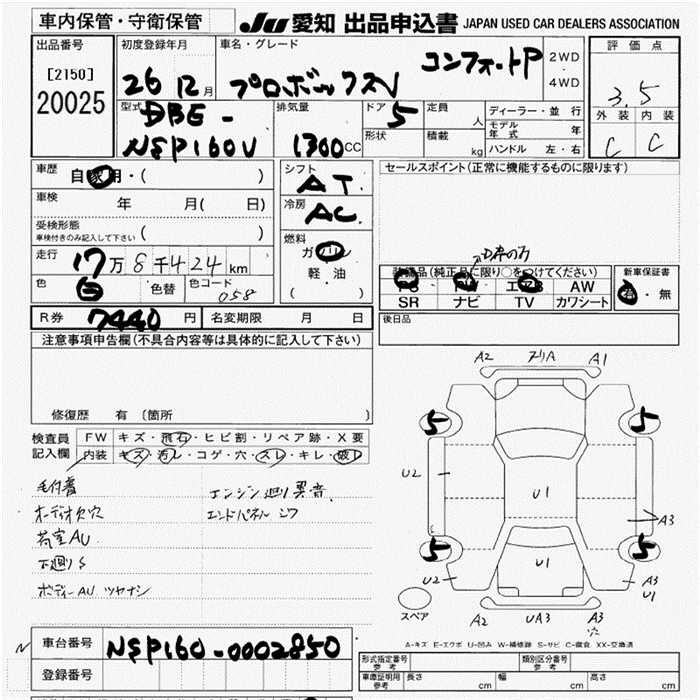 車内保管・守衛保管
JU 愛知 出品申込書 JAPAN USED CAR DEALERS ASSOCIATION
出品番号
[2150]
20025
初度登録年月
26 12月
車名・グレード
プロボックスV コンフォートP
2WD
・
4WD
評価点
3.5
外装 内装
C C
型式
DBE-
NSP160V
排気量
1300CC
ドア 5
形状
定員 人
積載 kg
ディーラー・並行
モデル年式 年
ハンドル 左・右
車歴
自家用・( )
車検 年 月( 日)
受検形態
車検付きのみ記入して下さい ( )
走行
17万8千424km
色 白 色替 色コード 058
シフト
AT
冷房
AC
燃料
ガソリン
軽・油
( )
セールスポイント(正常に機能するものに限ります)
装備品(純正品に限り○をつけてください)
PS PW エアB AW
SR ナビ TV カワシート
新車保証書
有・無
後日品
R券 7440円 名変期限 月 日
注意事項申告欄(不具合内容等は具体的に記入して下さい)
修復歴 有 〔箇所 〕
検査員記入欄
FW キズ・飛石・ヒビ割・リペア跡・X要
内装 キズ・汚レ・コゲ・穴・スレ・キレ・破レ
毛付着
エンジン廻り異音
オーディオ欠穴
エンドパネル シワ
荷室AU
下廻りS
ボディーAU ツヤナシ
A2 A1
5 5
U2 U1 A3
5 5
U2 U1 A3 U1
スペア
UA3 A3
穴
A-キズ E-エクボ U-凹み W-補修跡 S-サビ C-腐食 XX-交換済
車台番号 NSP160-0002850
登録番号
形式指定番号 参考
類別区分番号 参考
車庫証明用 参考 長さ cm 幅 cm 高さ cm